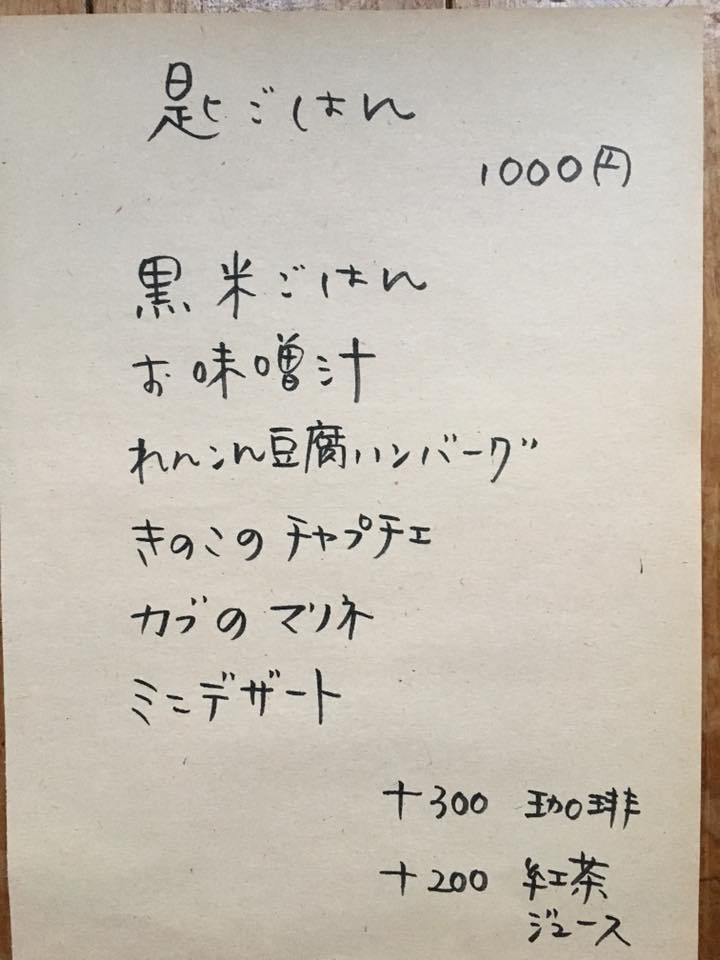 匙ごはん
1000円
黒米ごはん
お味噌汁
れんこん豆腐ハンバーグ
きのこのチャプチェ
カブのマリネ
ミニデザート
+300 珈琲
+200 紅茶
ジュース